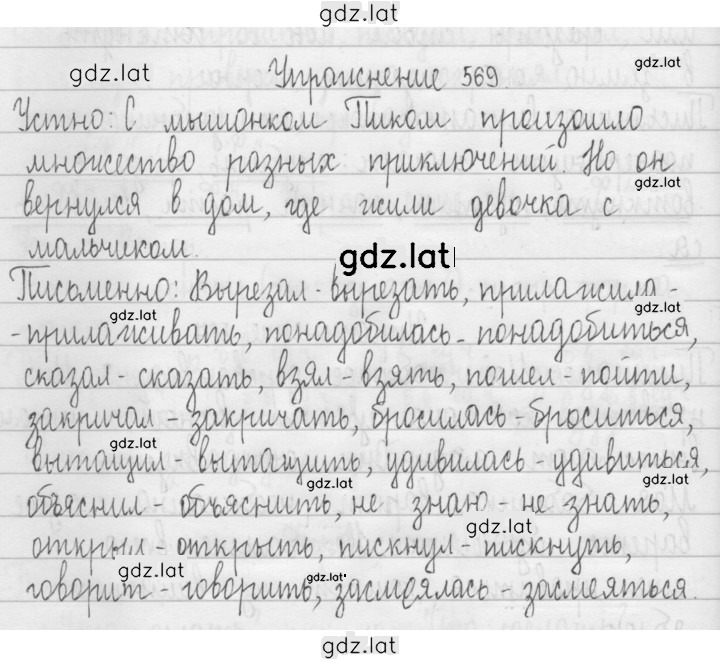 gdz.lat
gdz.lat
Упражнение 569.
Устно: С мышонком Пиком произошло
gdz.lat
множество разных приключений. Но он
gdz.lat
вернулся в дом, где жили девочка с
gdz.lat
мальчиком.
gdz.lat
Письменно: Вырезал - вырезать, прилажила -
gdz.lat
gdz.lat
- прилаживать, понадобилась - понадобиться,
сказал - сказать, взял - взять, пошел - пойти,
gdz.lat
закричал - закричать, бросилась - броситься,
gdz.lat
вытащил - вытащить, удивилась - удивиться,
gdz.lat
gdz.lat
объяснил - объяснить, не знаю - не знать,
gdz.lat
открыл - открыть, пискнул - пискнуть,
gdz.lat
gdz.lat
говорит - говорить, засмеялась - засмеяться.
gdz.lat